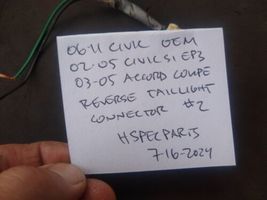 06-11 CIVIC OEM
02-05 CIVIC SI EP3
03-05 ACCORD COUPE
REVERSE TAILLIGHT
CONNECTOR #2
HSPECPARTS
716-2024